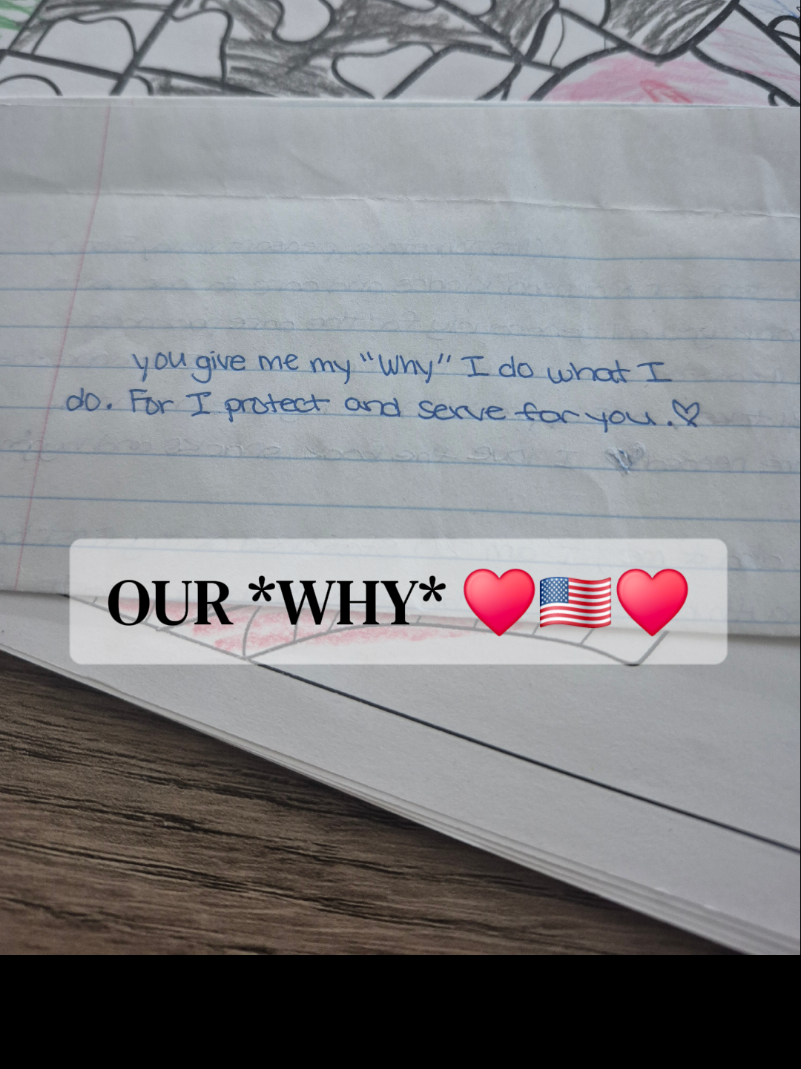 you give me my "Why" I do what I
do. For I protect and serve for you.♡
OUR *WHY* ❤️🇺🇸❤️